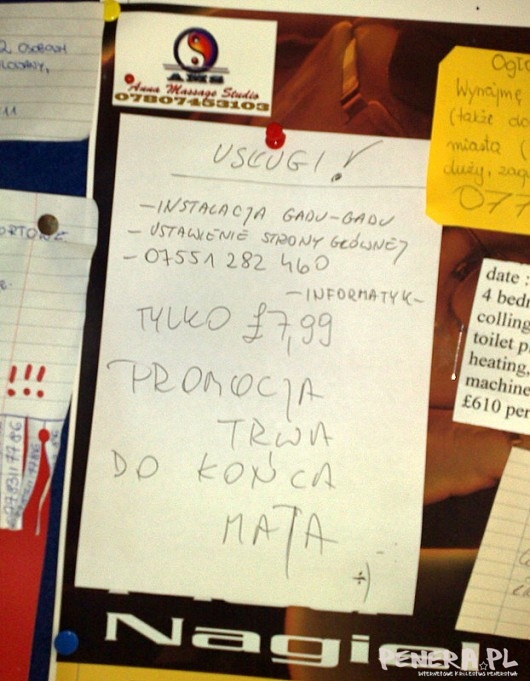 2 OSOBOM
11
AMS
Anna Massage Studio
07807453103
USŁUGI!
-INSTALACJA GADU-GADU
- USTAWIENIE STRONY GŁÓWNEJ
- 07551 282 460
-INFORMATYK-
TYLKO £7,99
PROMOCJA
TRWA
DO KOŃCA
MAJA
÷)
Wynajmę
(także do
miasta (
duży,
077
!!!
date :
4 bedr
colling
toilet p
heating,
machine
£610 per
Nagi
PENERA.PL
INTERNETOWE KRÓLESTWO PENERSTWA